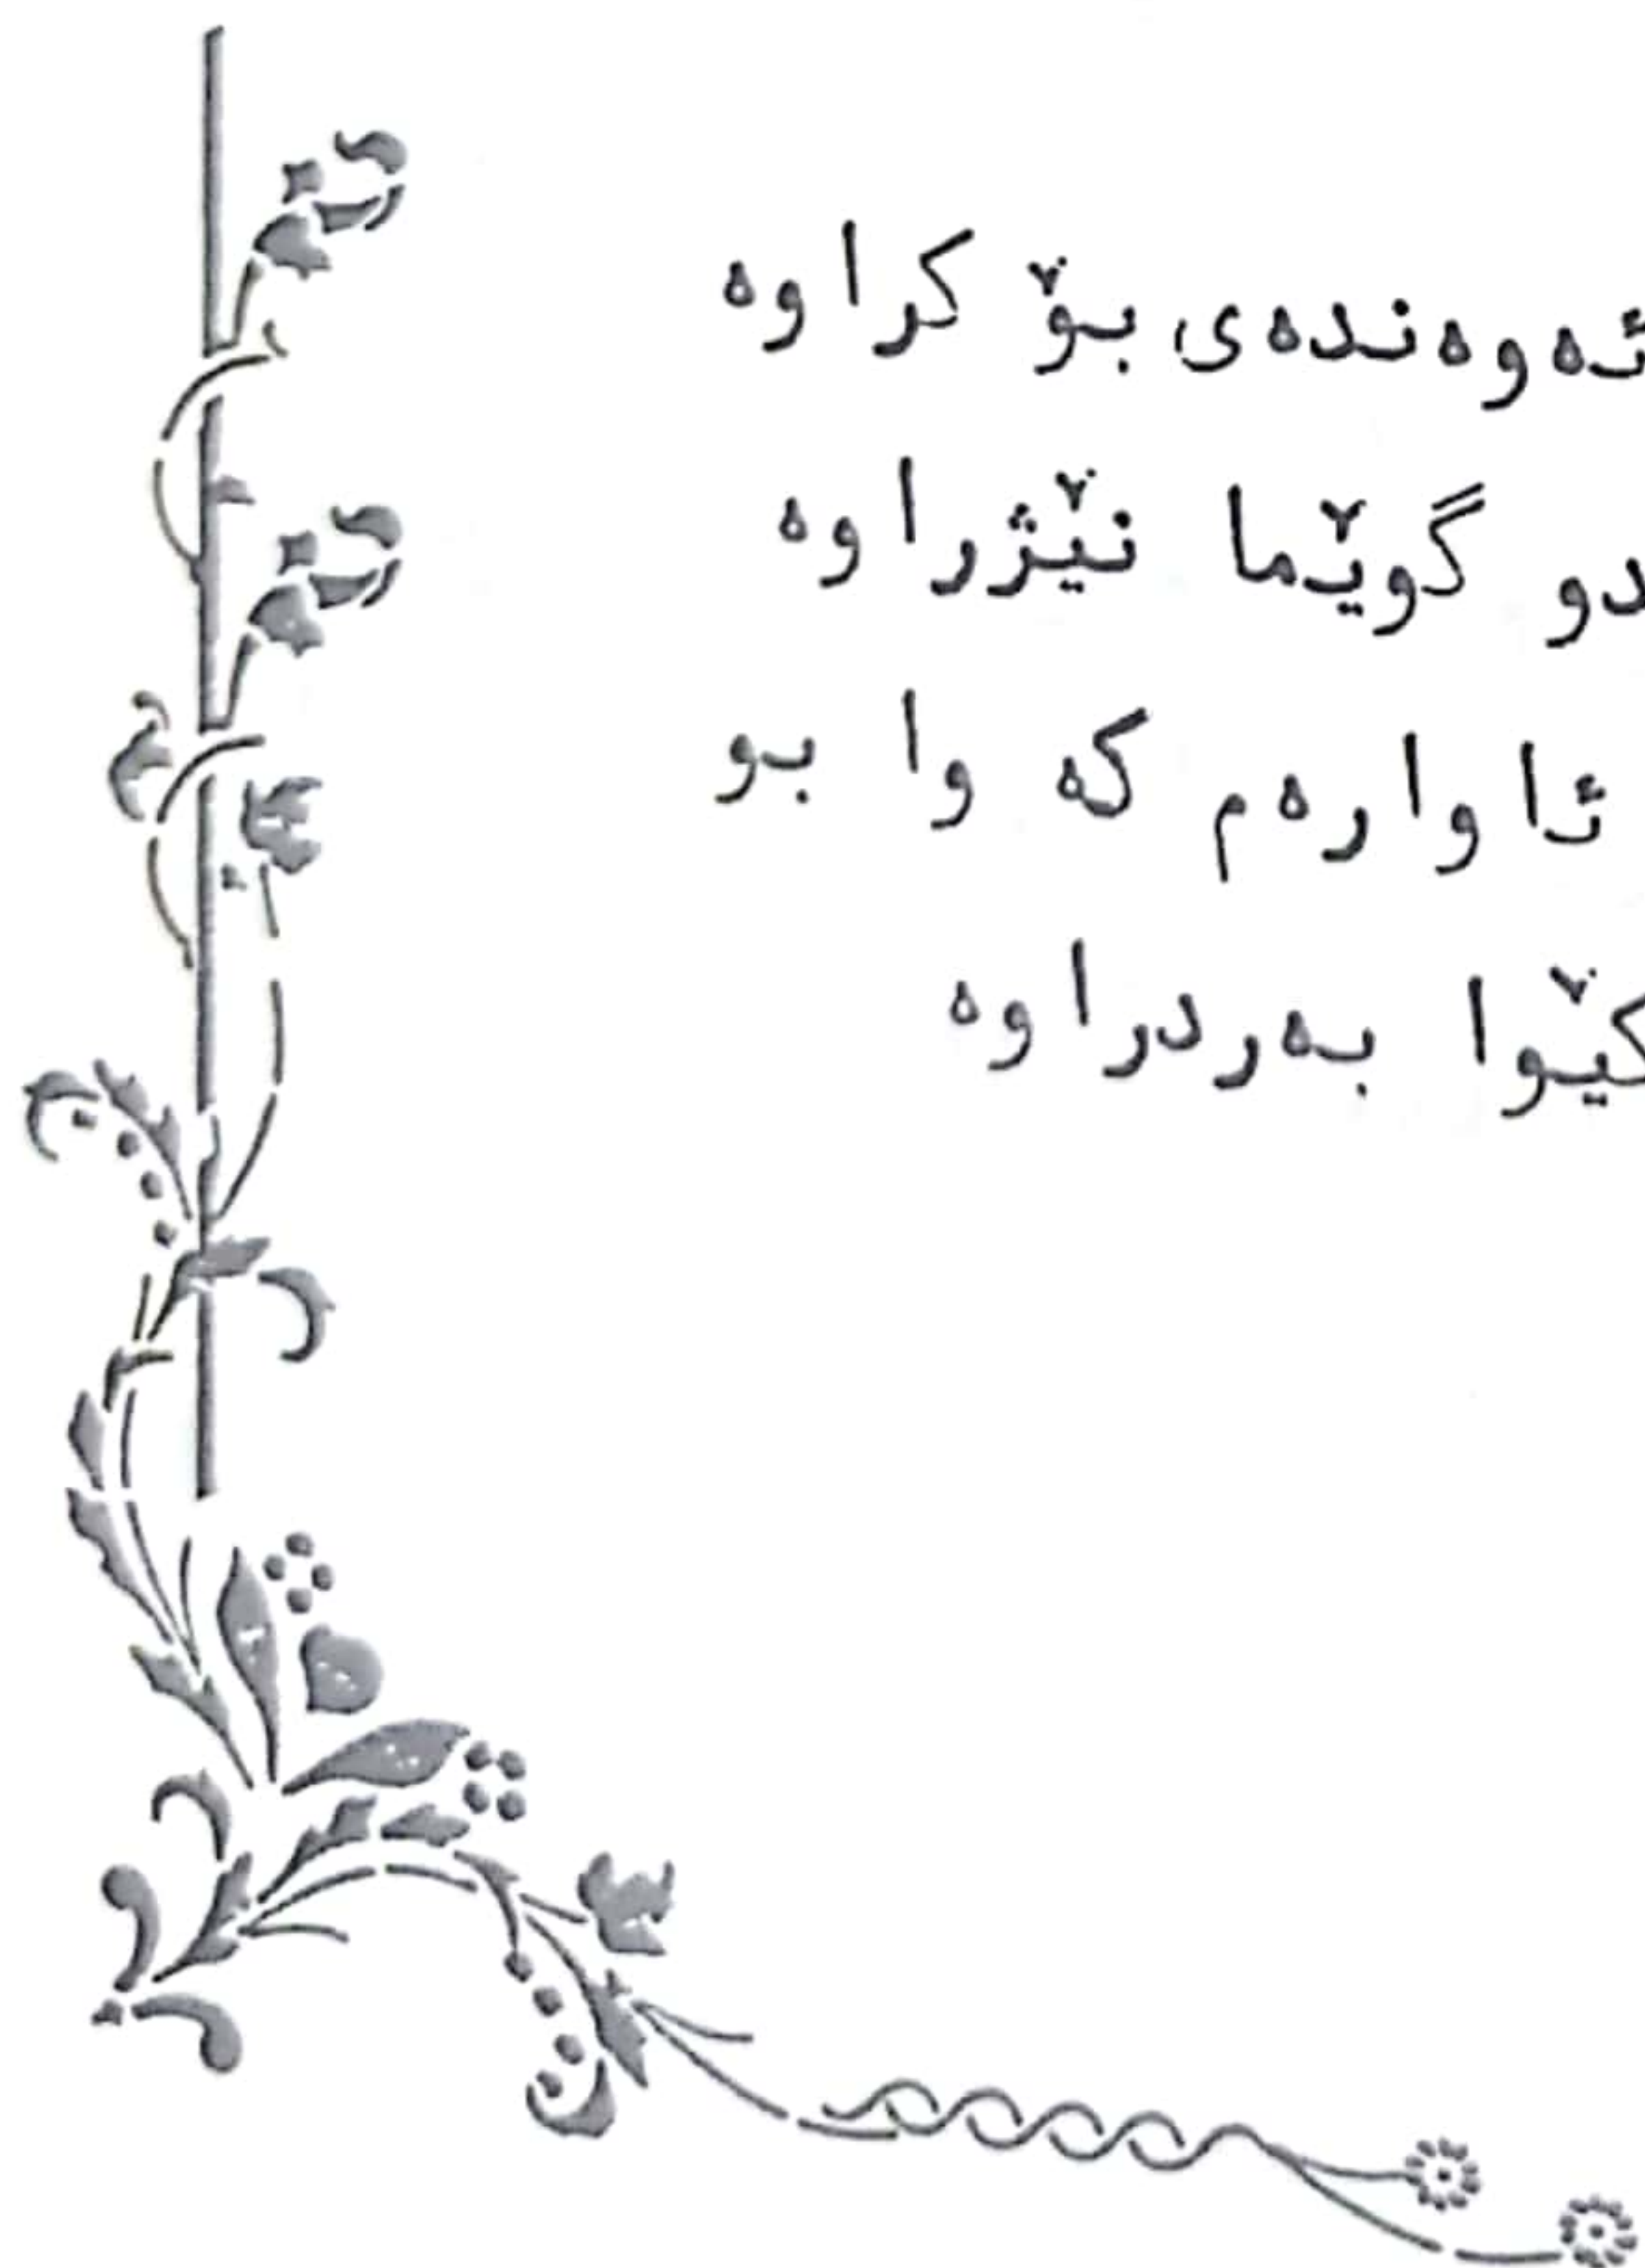 ئەوەندەی بۆ کراوە
گوێما نێژراوە
ئاوارەم کە وا بو
بەردراوە